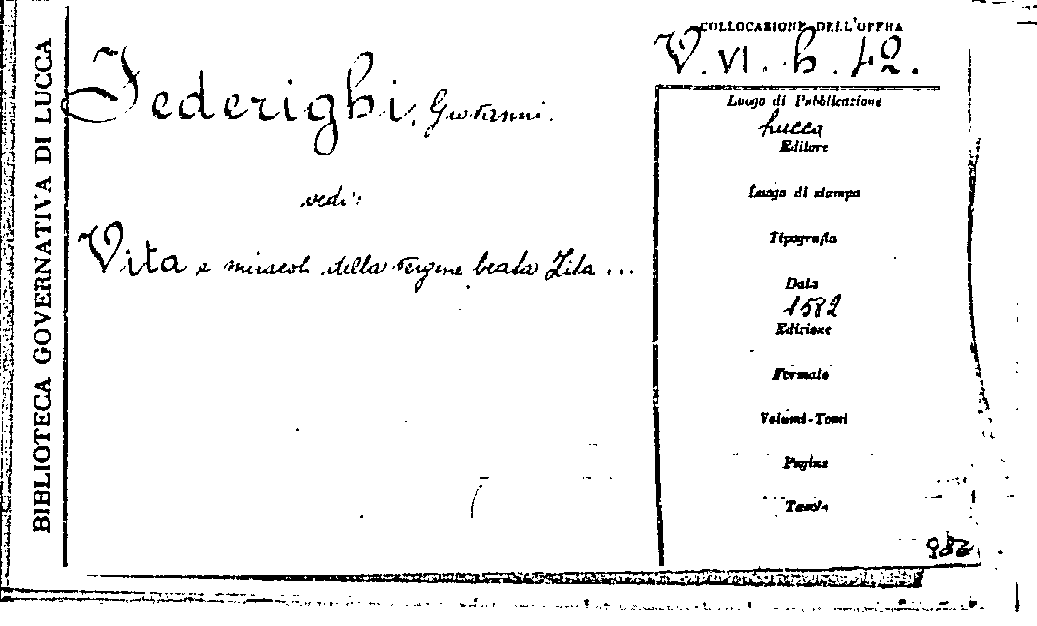 BIBLIOTECA GOVERNATIVA DI LUCCA
COLLOCAZIONE DELL'OPERA
V. VI. h. 42.
Federighi, Giovanni.
vedi:
Vita e miracoli della vergine beata Zita ...
Luogo di Pubblicazione
Lucca
Editore
Luogo di stampa
Tipografia
Data
1582
Edizione
Formato
Volumi-Tomi
Pagine
Tavole